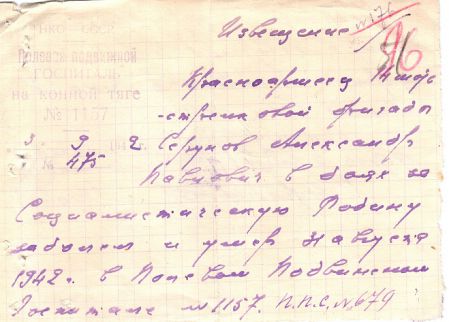 Извещение
№176
НКО - СССР
Полевой подвижной
ГОСПИТАЛЬ
на конной тяге
№ 1157
3 9 2
194 г.
№ 475
Красноармеец
-стрелковой бригады
Серунов Александр
Павлович в боях за
Социалистическую Родину
заболел и умер Августа
1942 г. в Полевом Подвижном
Госпитале № 1157. П.П.С. № 679